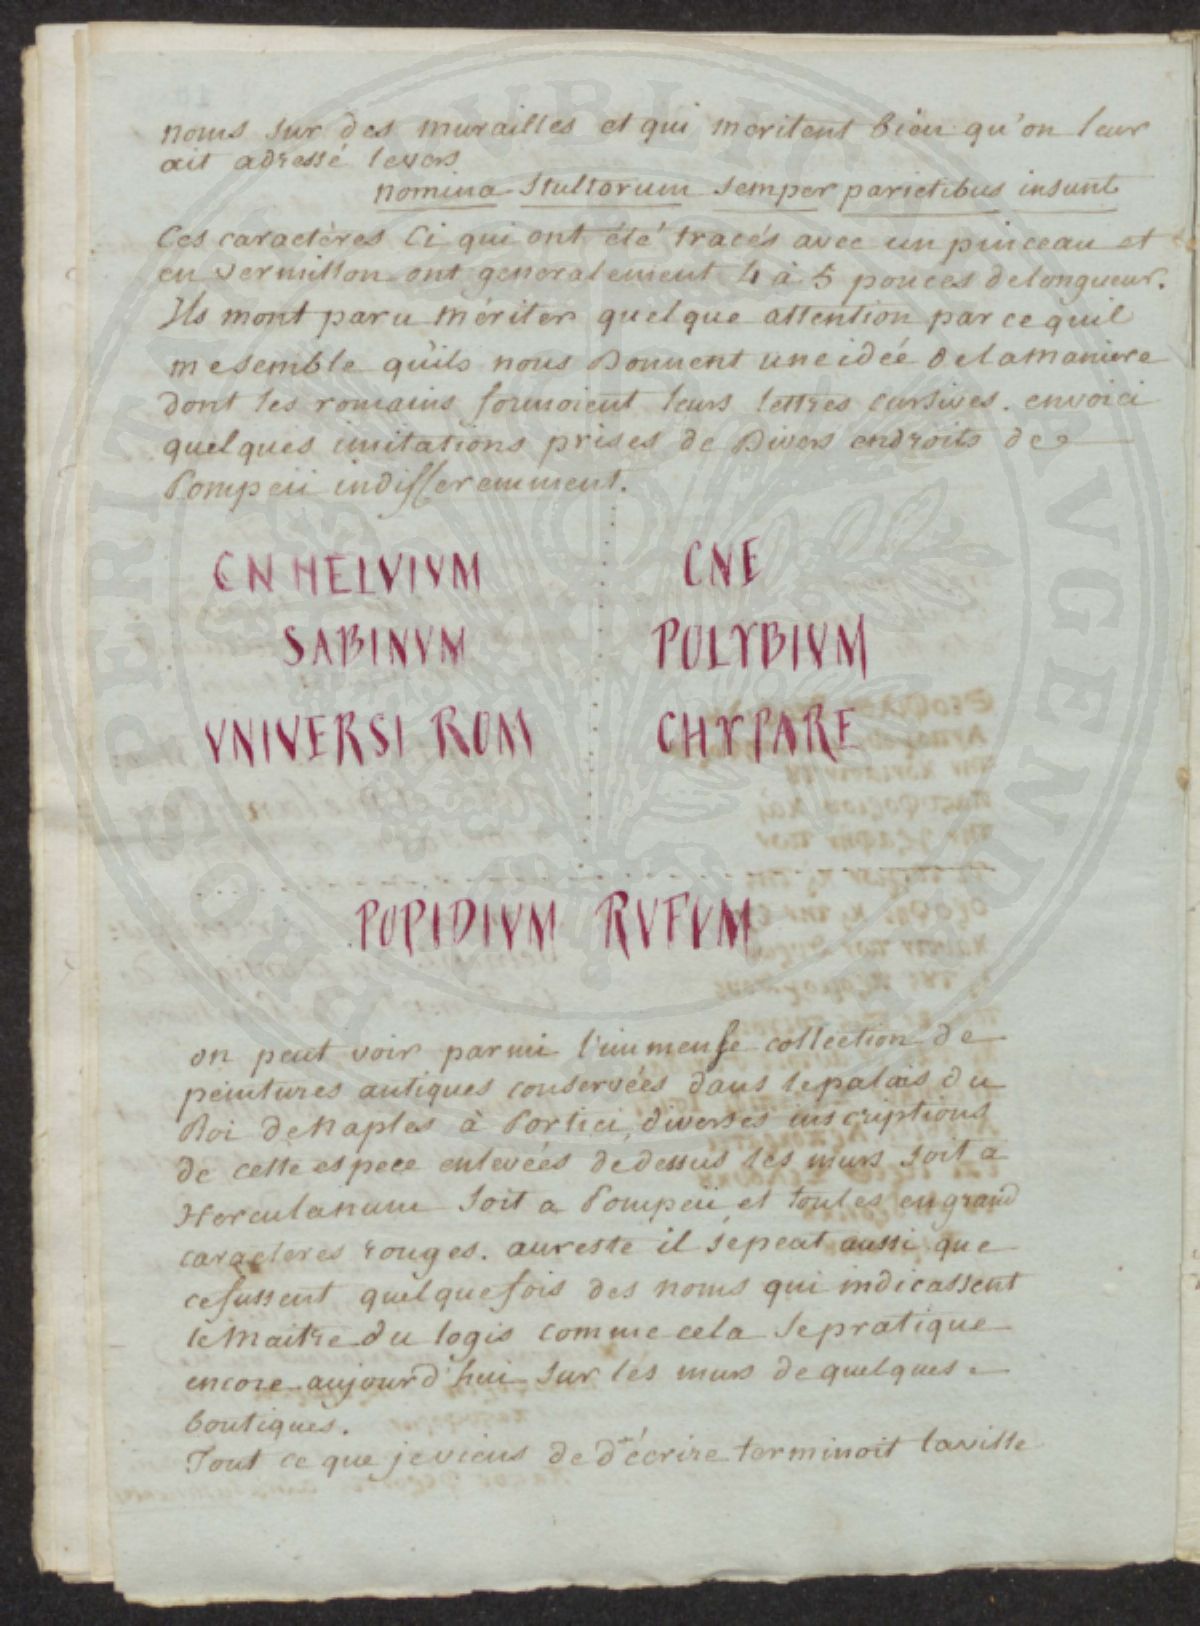 noms sur des murailles et qui meritent bien qu'on leur
ait adressé levers
nomina Stultorum semper parietibus insunt
Ces caractères Ci qui ont été tracés avec un pinceau et
en vermillon ont generalement 4 à 5 pouces delongueur.
Ils mont paru mériter quelque attention parcequil
mesemble quils nous Donnent uneidée delamaniere
dont les romains formoient leurs lettres cursives. envoici
quelques imitations prises de Divers endroits de
Pompeii indifferemment.
CN HELVIVM
SABINVM
VNIVERSI ROM
CNE
POLYBIVM
CHYPARE
POPIDIVM RVFVM
on peut voir parmi l'immense collection de
peintures antiques conservées dans lepalais du
Roi deNaples à Portici, diverses inscriptions
de cette espece enlevées dedessus les murs soit a
Herculanum soit a Pompeii et toutes engrand
caracteres rouges. aureste il sepeut aussi que
cefussent quelquefois des noms qui indicassent
leMaitre du logis comme cela sepratique
encore aujourd'hui sur les murs dequelques
boutiques.
Tout ce que jeviens de décrire terminoit laville
PROSPERITATI PUBLICAE AUGENDAE